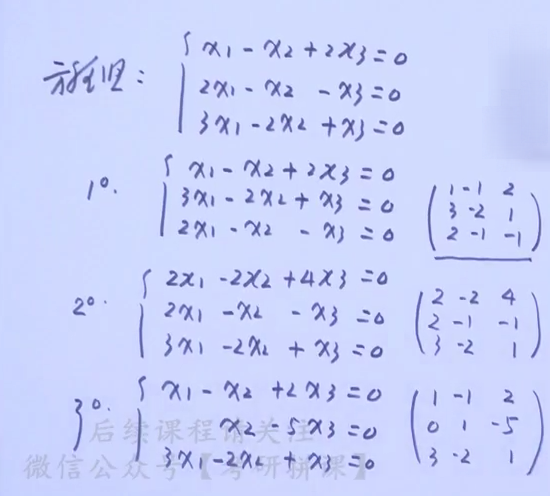 方程组:
{ x1 - x2 + 2x3 = 0
2x1 - x2 - x3 = 0
3x1 - 2x2 + x3 = 0
1°. { x1 - x2 + 2x3 = 0
3x1 - 2x2 + x3 = 0
2x1 - x2 - x3 = 0
( 1 -1 2
3 -2 1
2 -1 -1 )
2°. { 2x1 - 2x2 + 4x3 = 0
2x1 - x2 - x3 = 0
3x1 - 2x2 + x3 = 0
( 2 -2 4
2 -1 -1
3 -2 1 )
3°. { x1 - x2 + 2x3 = 0
x2 - 5x3 = 0
3x1 - 2x2 + x3 = 0
( 1 -1 2
0 1 -5
3 -2 1 )
后续课程请关注
微信公众号【考研拼课】